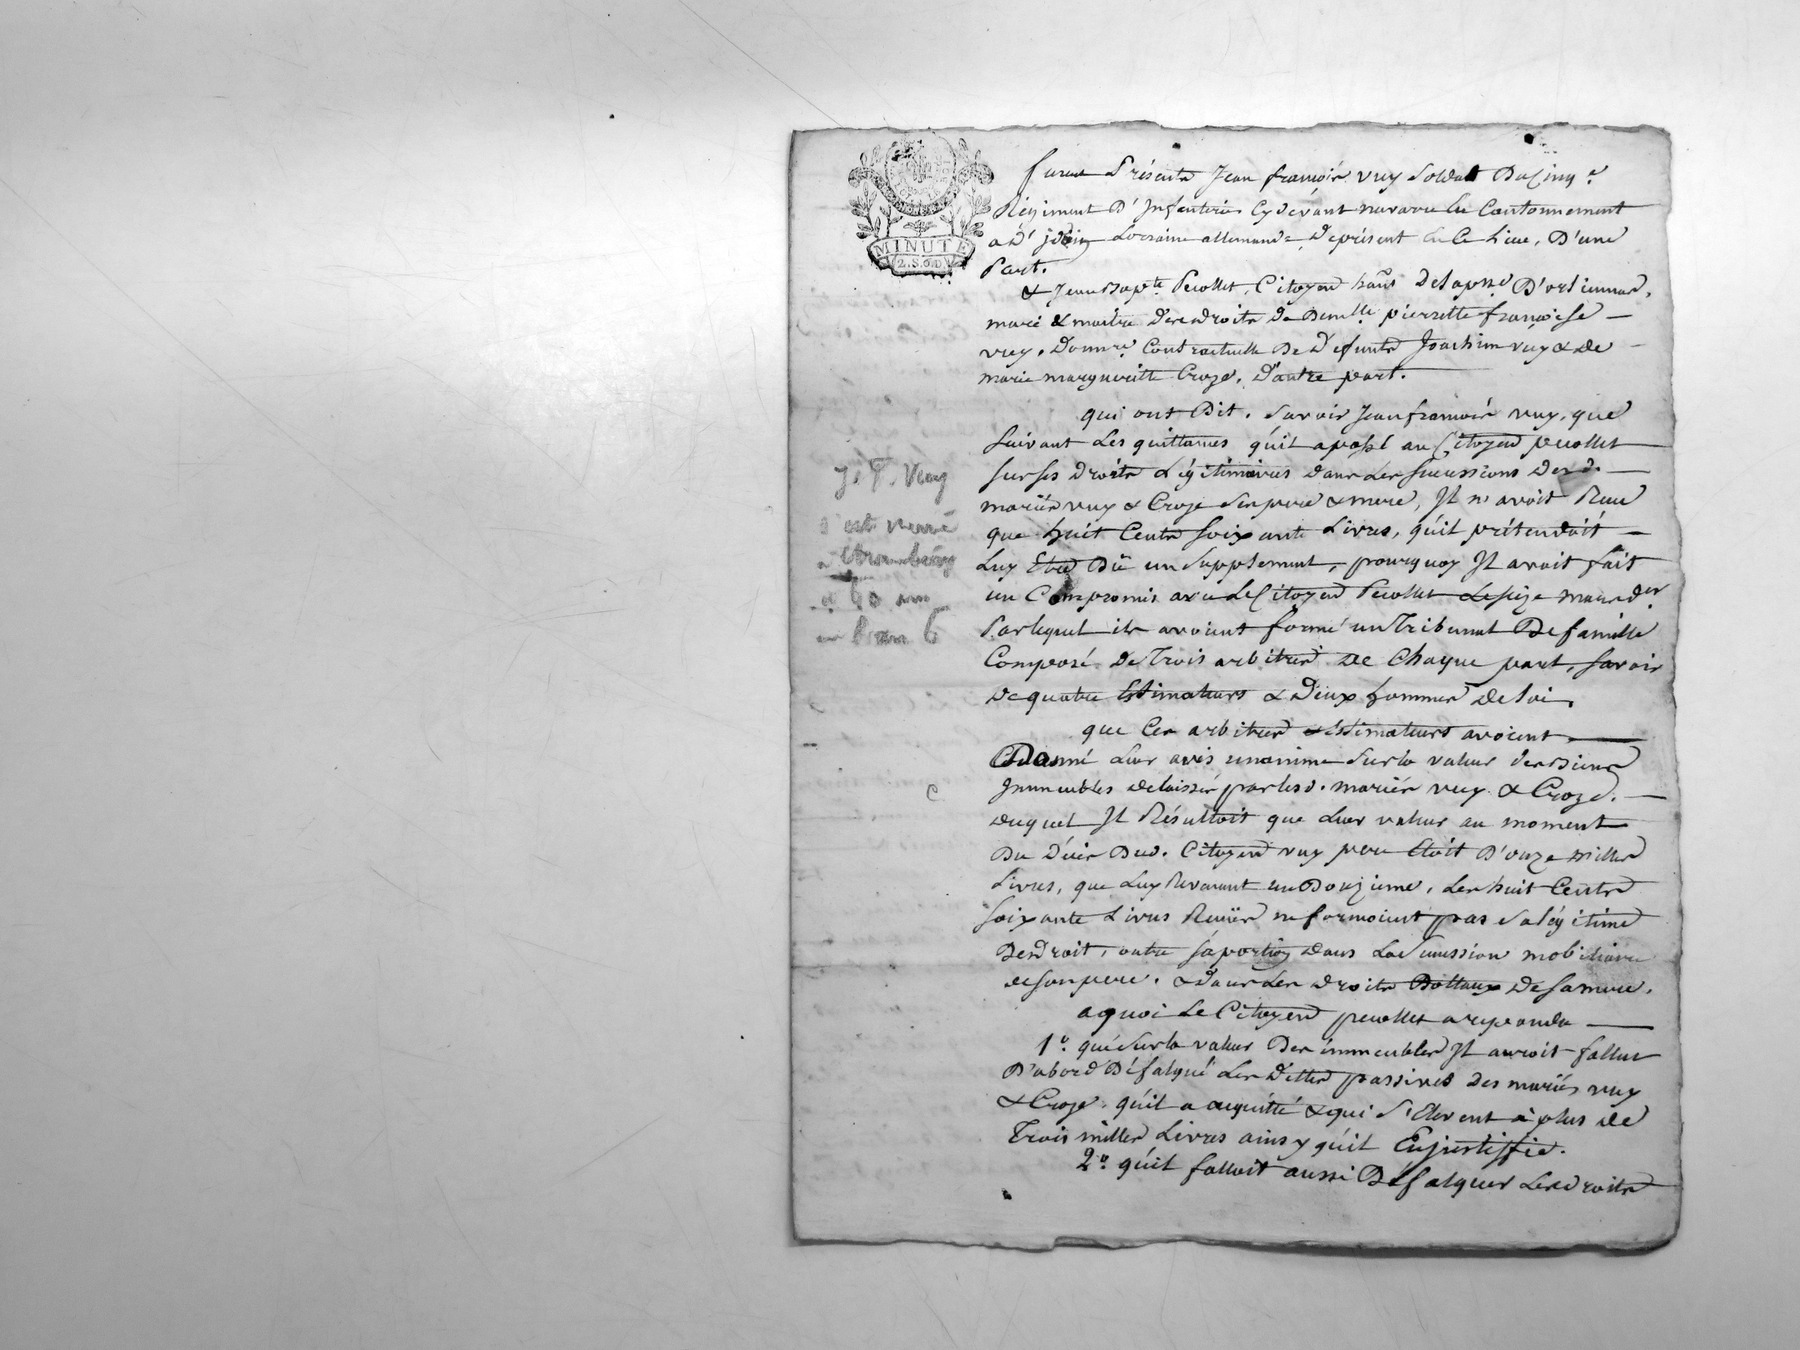 MINUTE
2.S.6.D
furent Présents Jean francois vuy soldat Du Cinq.e
Régiment D'Infanterie Cydevant navarre En Cantonnement
a Lorraine allemande, De présent En Ce Lieu, D'une
Part.
& Jean Bap.te Pecollet, Citoyen
marié & maitre Des droits De Dem.lle pierrette françoise
vuy, Contractuelle De Defunts Joachim vuy & De
marie margueritte Croze, D'autre part.
qui ont Dit, Savoir Jean francois vuy, que
Suivant Les quittances qu'il a passé au Citoyen pecollet
Sur ses droits Légitimaires Dans Les successions Des d.
mariés vuy & Croze Ses pere & mere, Il n'avoit Reçu
que huit Cents Soixante Livres, qu'il prétendoit
Luy Etre Dû un Supplement, pourquoy Il avoit fait
un Compromis avec Le Citoyen Pecollet Le seize mars d.er
Par lequel ils avoient formé un Tribunal De famille
Composé De Trois arbitres De Chaque part, Savoir
De quatre Estimateurs & Deux hommes De Loi,
que Ces arbitres & Estimateurs avoient
Donné Leur avis unanime Sur la valeur Des Biens
Immeubles delaissés par lesd. mariés vuy & Croze.
duquel Il Résultoit que Leur valeur au moment
Du Décès Dud. Citoyen vuy pere Etoit D'onze milles
Livres, que Luy Revenant un Douzieme, Les huit Cents
Soixante Livres Reçües ne formoient pas Sa légitime
De droit, outre sa portion dans La Succession mobiliaire
de son pere, & Dans Les Droits Dottaux De Sa mere.
a quoi Le Citoyen pecollet a repondu
1.o que Sur la valeur Des immeubles Il auroit fallut
D'abord Défalqué Les Dettes passives des mariés vuy
& Croze, qu'il a acquitté & qui S'Elevent à plus de
Trois milles Livres ainsy qu'il En justiffie.
2.o qu'il falloit aussi Defalquer Les droits
J. F. Vuy